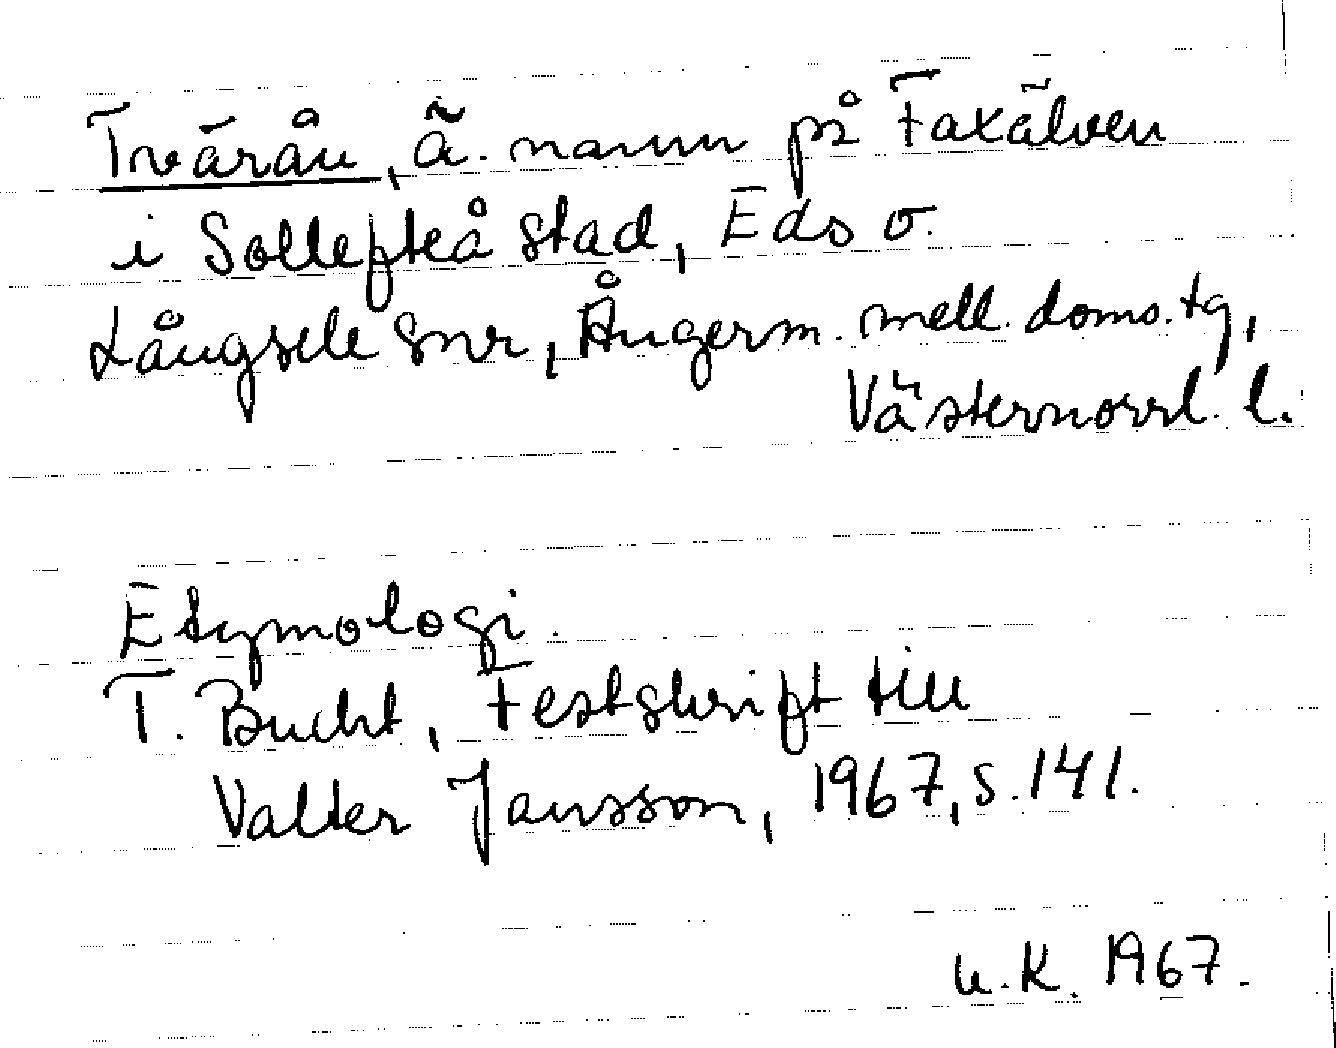 Tvärån, ä. namn på Faxälven
i Sollefteå stad, Eds o.
Långsele snr, Ångerm. mell. doms. tg,
Västernorrl. l.
Etymologi.
T. Bucht, Festskrift till
Valter Jansson, 1967, s. 141.
U.K. 1967.